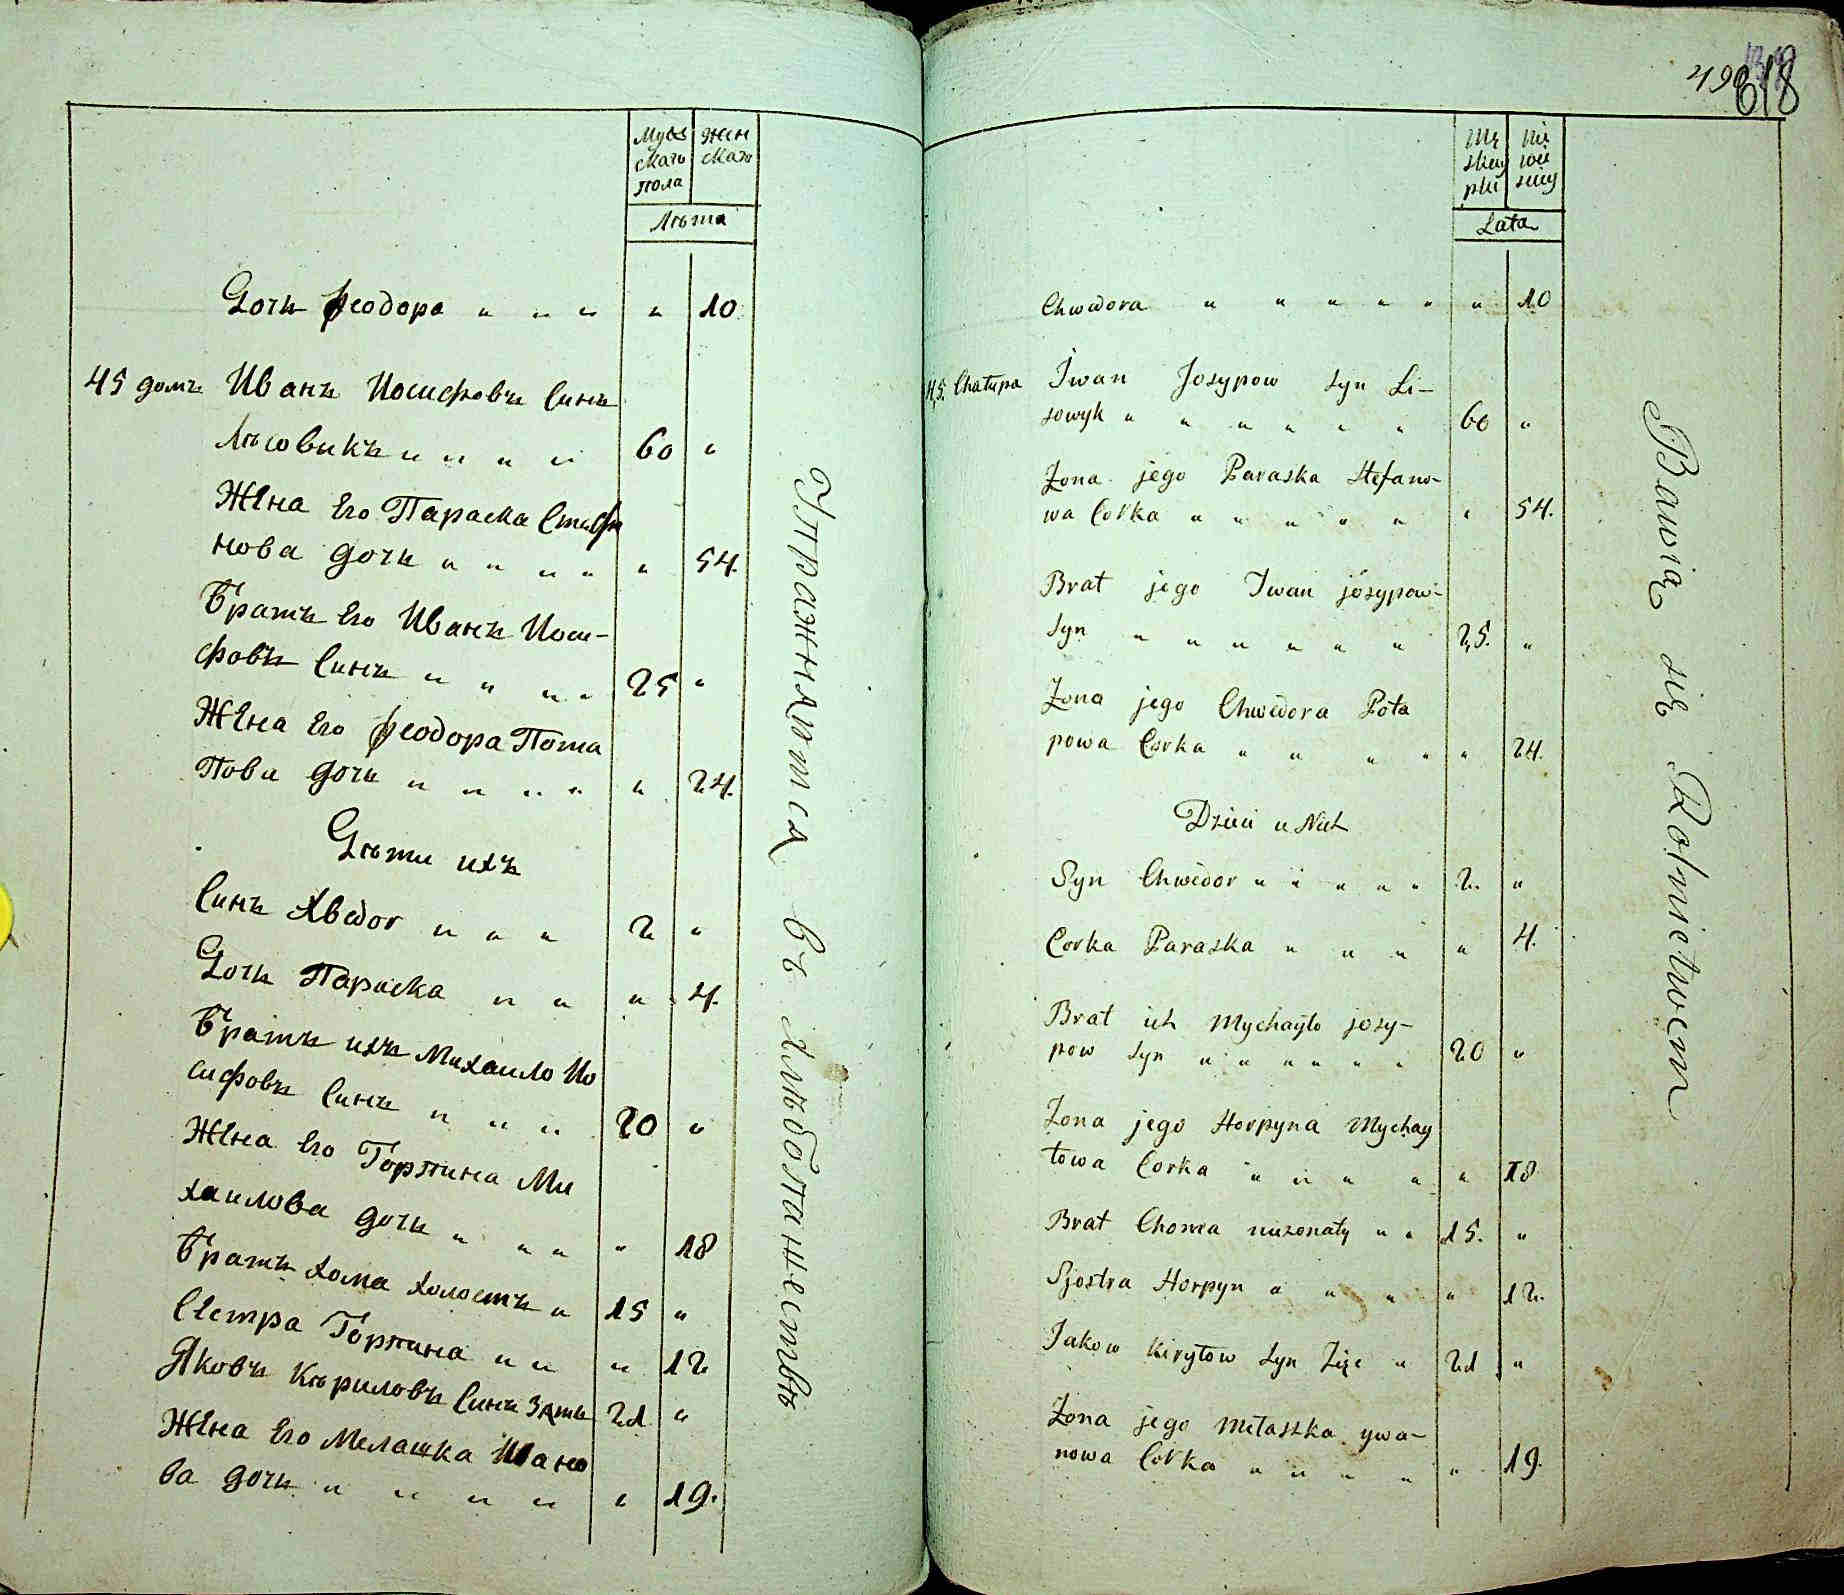 Мужскаго пола
Женскаго
Лѣта
Дочь Ѳеодора " " " " 10
45 домъ Иванъ Иосифовъ Синъ
Лѣсовикъ " " " " 60 "
Жена Его Параска Стефа
нова дочь " " " " " 54.
Братъ Его Иванъ Иоси-
фовъ Синъ " " " " 25 "
Жена Его Ѳеодора Пота
пова дочь " " " " " 24.
Дѣти ихъ
Синъ Хведог " " " 2 "
Дочь Параска " " " 4.
Братъ ихъ Михаило Ио
сифовъ Синъ " " " 20 "
Жена Его Горпина Ми
хаилова дочь " " " " 18
Братъ Хома холостъ " 15 "
Сестра Горпина " " " 12
Яковъ Кѣриловъ Синъ Зять 21 "
Жена Его Мелашка Ивано
ва дочь " " " " " 19.
Упражняются въ хлѣбопашествѣ
618
Lata
Chwedora " " " " " " " 10
45. Chałupa Iwan Josypow syn Li-
sowyk " " " " " " 60 "
Zona jego Paraska Stefano-
wa Corka " " " " " " 54.
Brat jego Iwan josypow-
syn " " " " " " 25. "
Zona jego Chwedora Pota
powa Corka " " " " " 24.
Dzieci u Nich
Syn Chwedor " " " " " 2. "
Corka Paraska " " " " 4.
Brat ich Mychayło josy-
pow syn " " " " " " 20 "
Zona jego Horpyna Mychay
łowa Corka " " " " " 18
Brat Choma niezonaty " " 15. "
Sjostra Horpyn " " " " " 12.
Jakow Kiryłow syn Zięc " 21 "
Zona jego Mełaszka ywa-
nowa Corka " " " " " 19.
Bawią się Rolnictwem